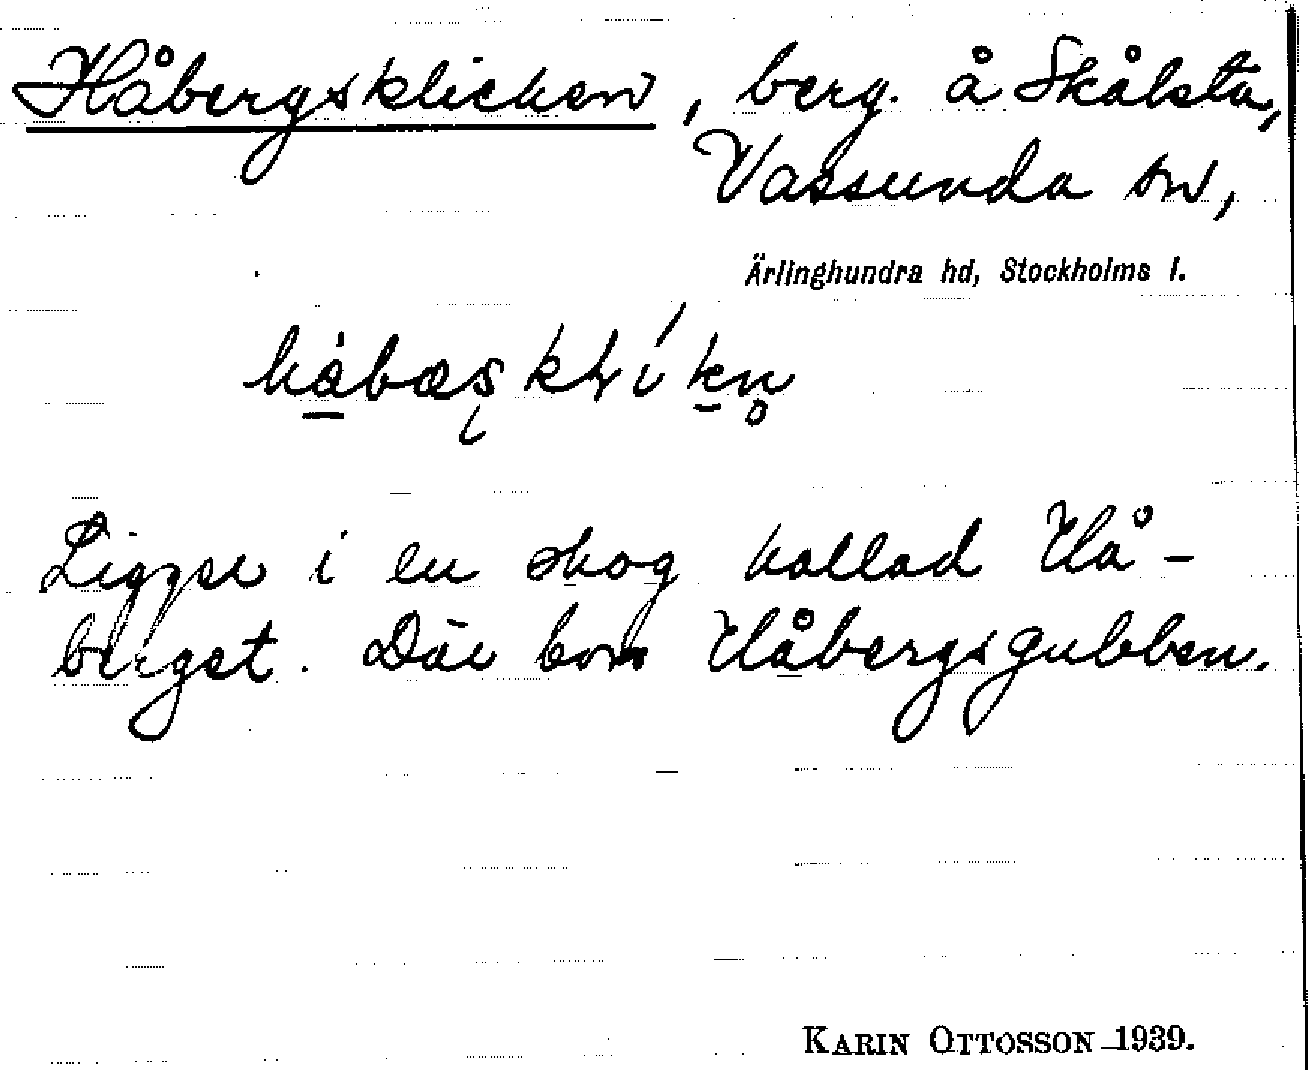 Håbergsklicken, berg. å Skålsta,
Vassunda sn,
Ärlinghundra hd, Stockholms l.
Ligger i en skog kallad Hå-
berget. Där bor Håbergsgubben.
KARIN OTTOSSON 1939.